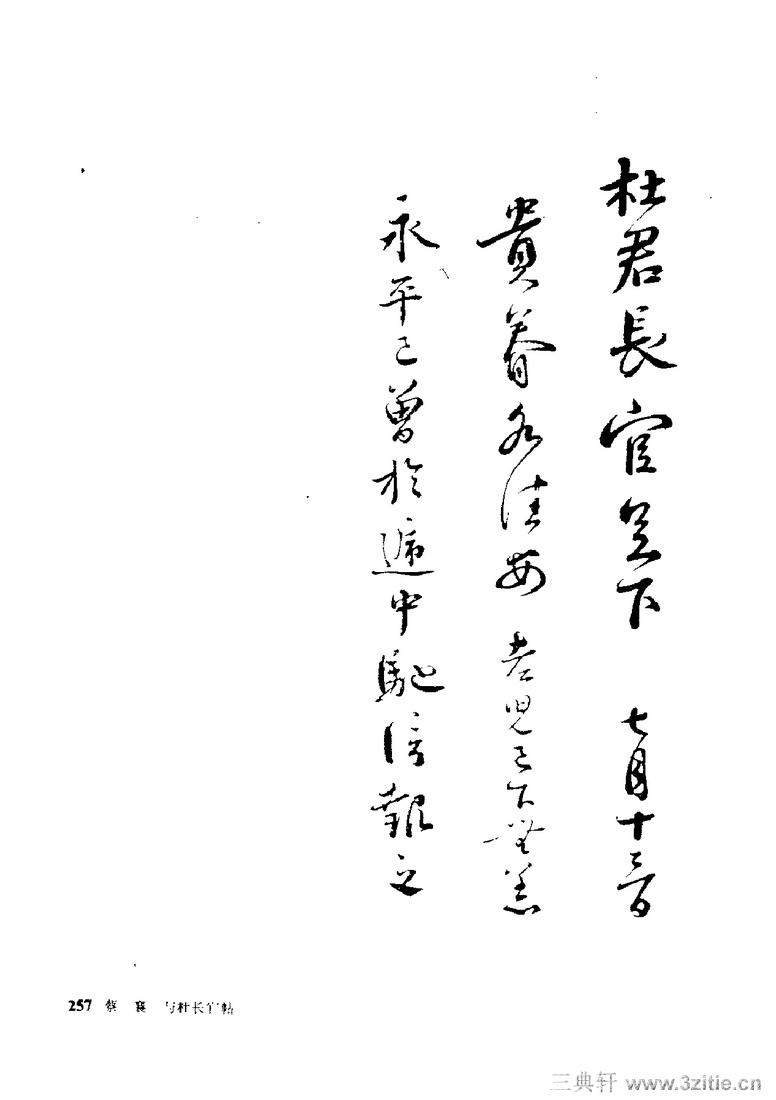 杜君長官足下 七月十三日
貴眷各佳安 老兒已下無恙
永平已曾於遞中馳信報之
257 蔡 襄 与杜长官帖
三典轩 www.3zitie.cn